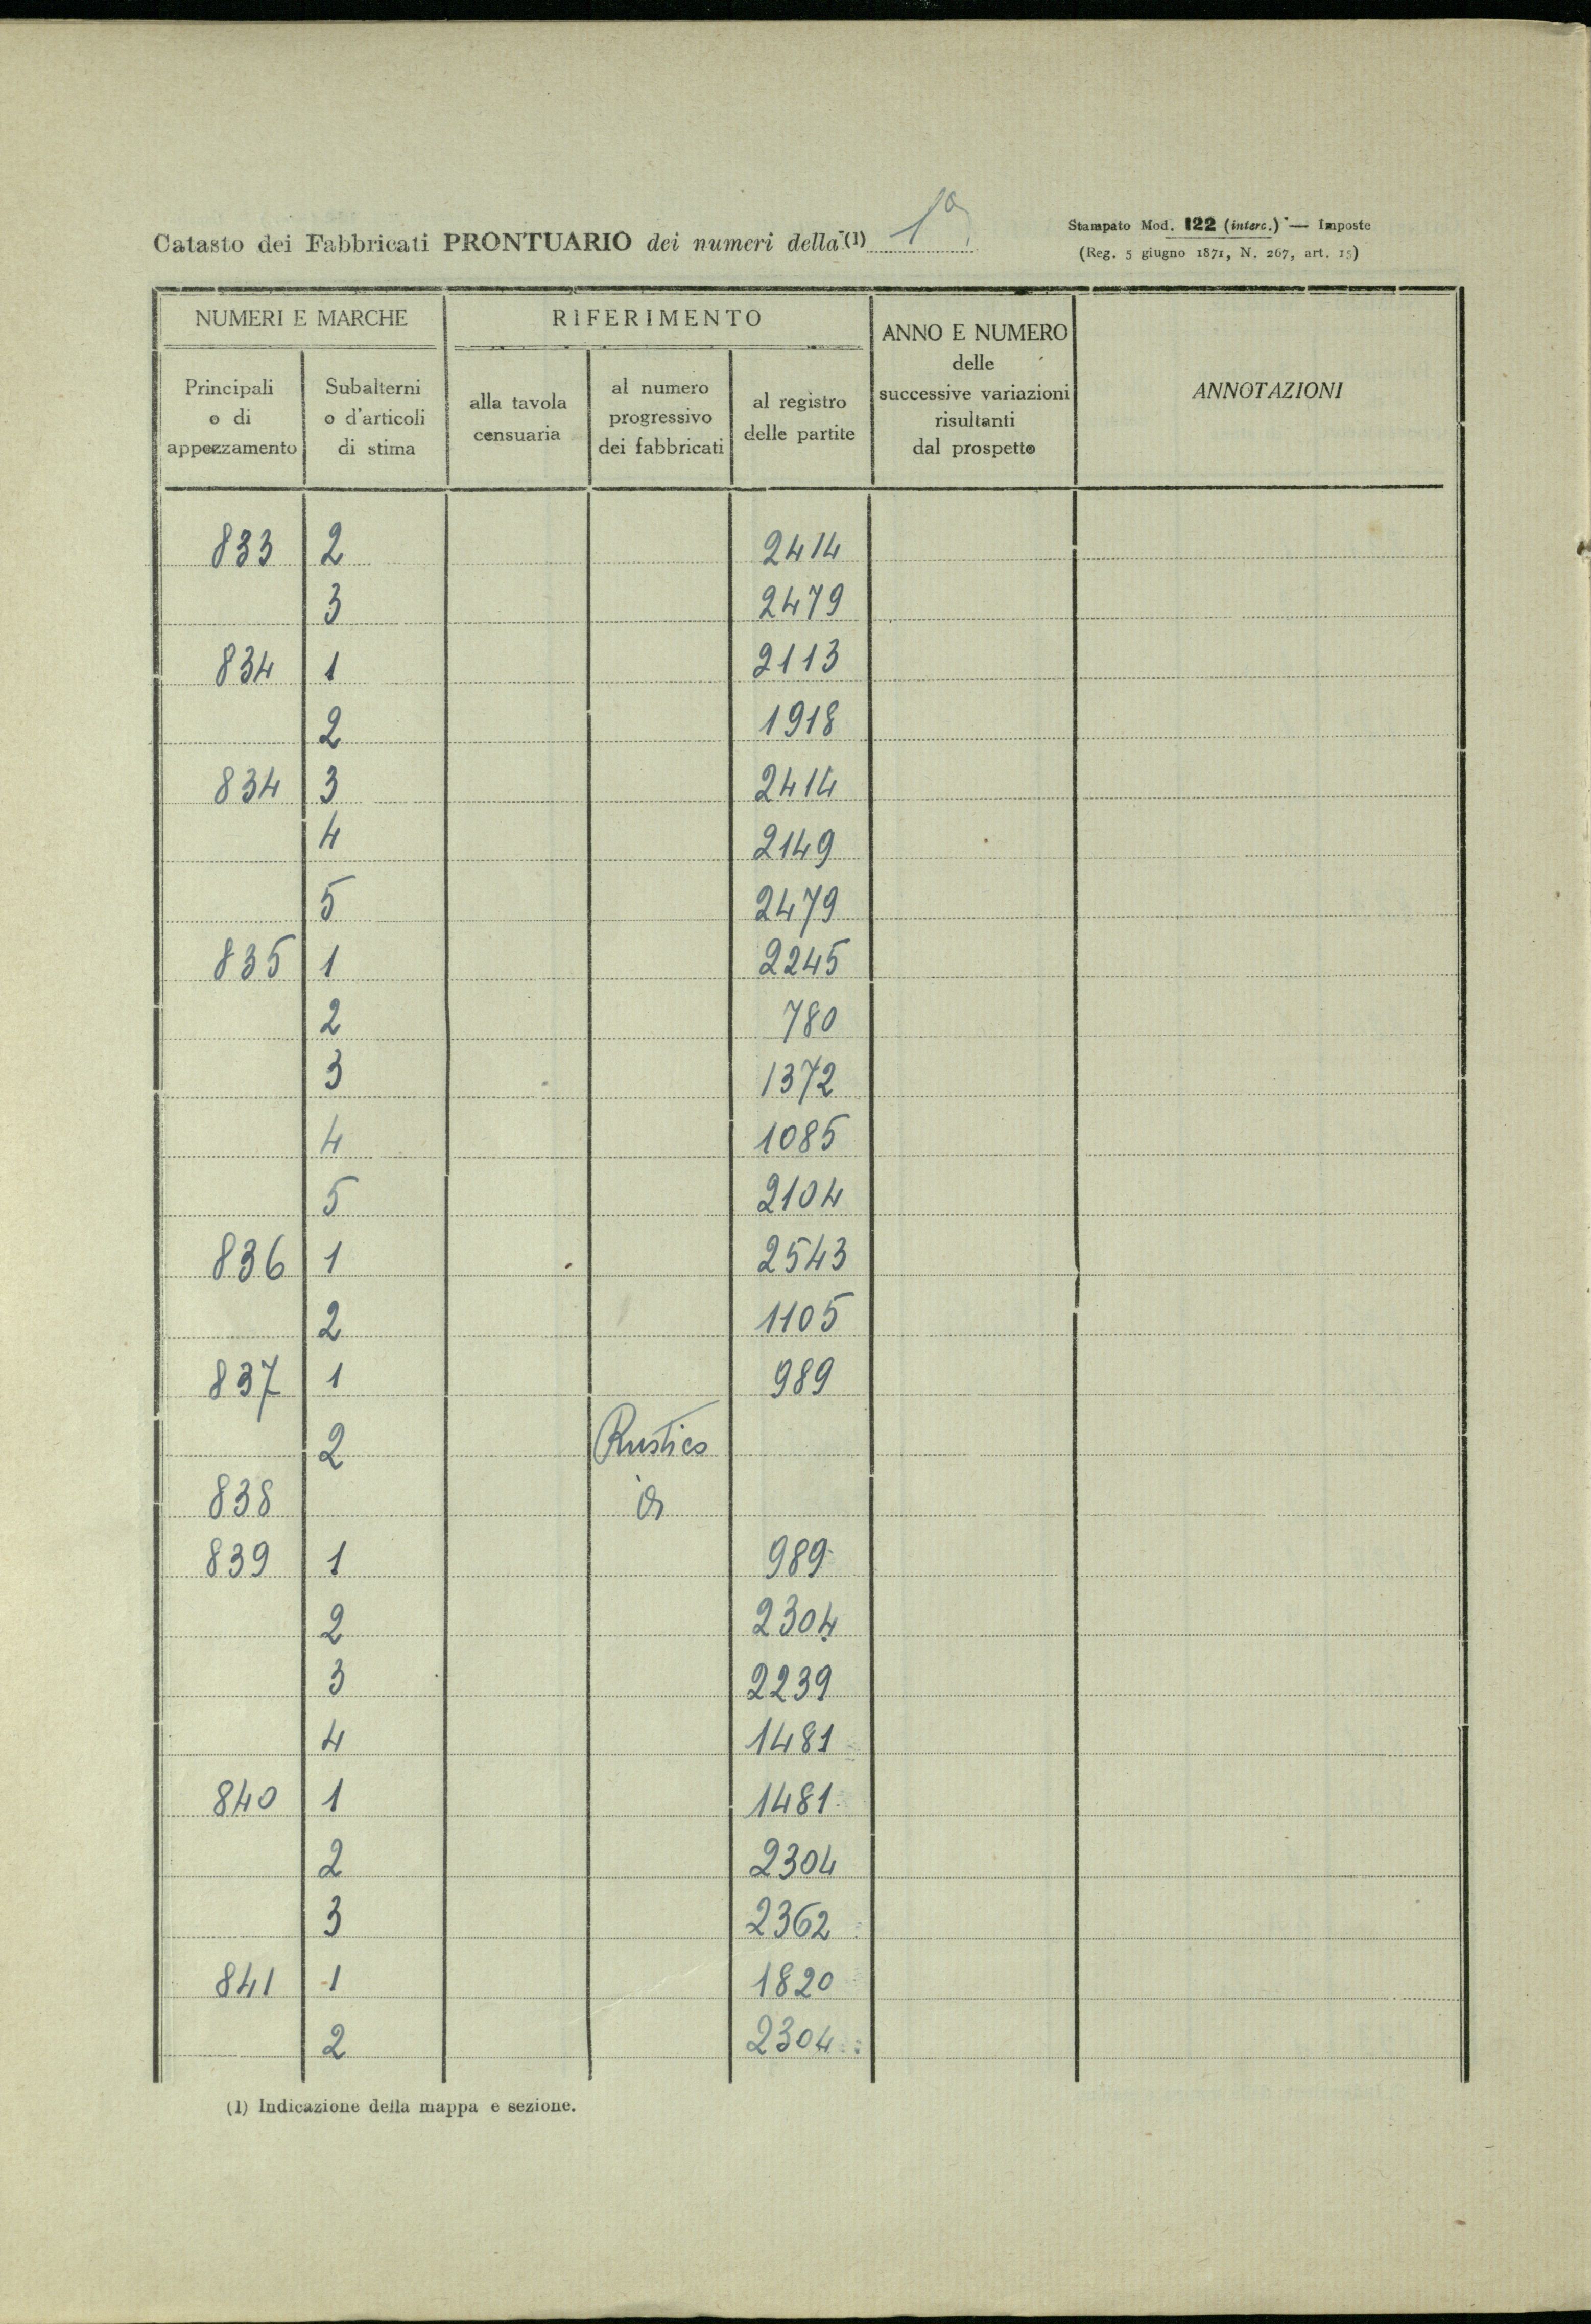 Catasto dei Fabbricati PRONTUARIO dei numeri della (1) 1a
Stampato Mod. 122 (interc.) — Imposte
(Reg. 5 giugno 1871, N. 267, art. 15)
NUMERI E MARCHE
RIFERIMENTO
ANNO E NUMERO
delle
successive variazioni
risultanti
dal prospetto
ANNOTAZIONI
Principali
o di
appezzamento
Subalterni
o d'articoli
di stima
alla tavola
censuaria
al numero
progressivo
dei fabbricati
al registro
delle partite
833 2 2414
3 2479
834 1 2113
2 1918
834 3 2414
4 2149
5 2479
835 1 2245
2 780
3 1372
4 1085
5 2104
836 1 2543
2 1105
837 1 989
2 Rustico
838
839 1 989
2 2304
3 2239
4 1481
840 1 1481
2 2304
3 2362
841 1 1820
2 2304
(1) Indicazione della mappa e sezione.